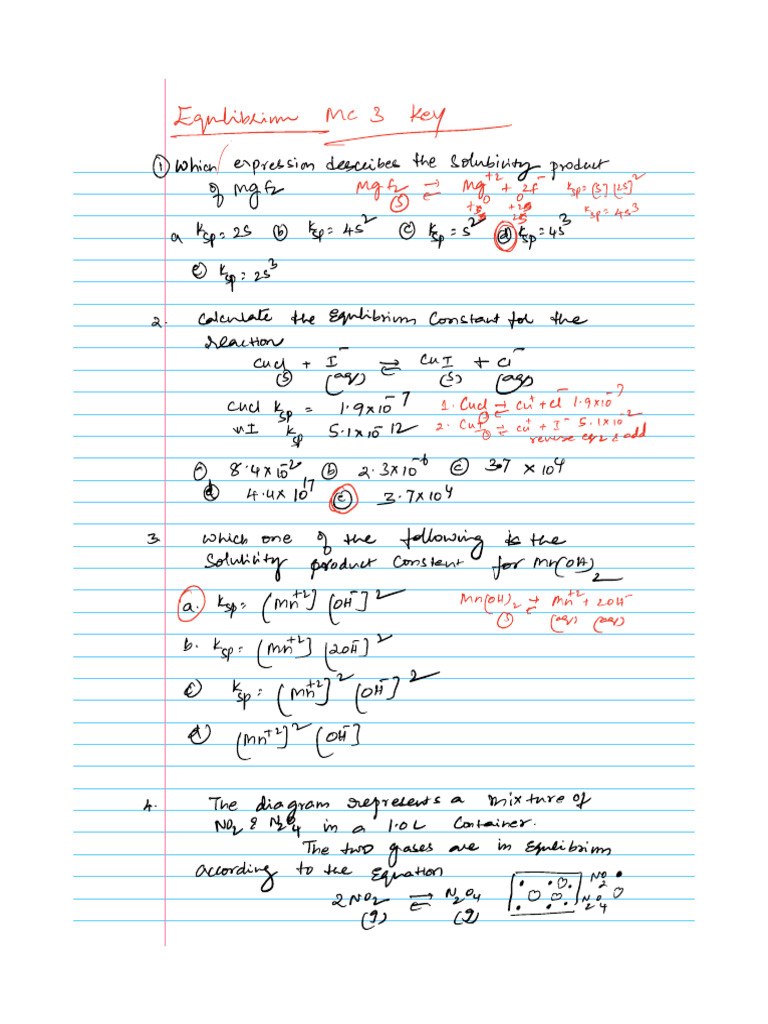 Equlibrium Mc 3 key
① Which expression describes the Solubility product
of MgF2 MgF2 ⇌ Mg+2 + 2F- Ksp = (s) (2s)2
(s) 0 0
+s +2s Ksp = 4s3
s 2s
a Ksp = 2s ⓑ Ksp = 4s2 ⓒ Ksp = s2 ⓓ Ksp = 4s3
ⓔ Ksp = 2s3
2. Calculate the Equlibrium Constant for the
reaction
CuCl + I- ⇌ CuI + Cl-
(s) (aq) (s) (aq)
CuCl Ksp = 1.9x10-7 1. CuCl ⇌ Cu+ + Cl- 1.9x10-7
(s)
uI Ksp 5.1x10-12 2. CuI ⇌ Cu+ + I- 5.1x10-2
(s) reverse eq 2 & add
ⓐ 8.4x10-2 ⓑ 2.3x10-6 ⓒ 3.7 x 104
ⓓ 4.4x1017 ⓔ 3.7x104
3. Which one of the following is the
Solubility product Constant for Mn(OH)2
a. Ksp = (Mn+2] [OH-]2 Mn(OH)2 ⇌ Mn+2 + 2OH-
(s) (aq) (aq)
b. Ksp = (Mn+2] [2OH-]2
ⓒ Ksp = (Mn+2]2 [OH-]2
ⓓ (Mn+2]2 [OH-]
4. The diagram represents a mixture of
NO2 & N2O4 in a 1.0L Container.
The two gases are in Equlibrium
according to the Equation
NO2
2NO2 ⇌ N2O4 N2O4
(g) (g)